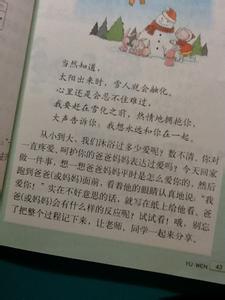 当然知道，
太阳出来时，雪人就会融化。
心里还是会忍不住难过，
我要赶在雪化之前，热情地拥抱你，
大声告诉你：我想永远和你在一起。
从小到大，我们沐浴过多少爱呢？数不清。你对
一直疼爱、呵护你的爸爸妈妈表达过爱吗？今天回家
做一件事，想一想爸爸妈妈平时是怎么爱你的，然后
跑到爸爸（或妈妈）面前，看着他的眼睛认真地说：“我
爱你！”实在不好意思的话，就写在纸上给他看。爸
爸（或妈妈）会有什么样的反应呢？试试看！哦，别忘
了把整个过程记下来，让老师、同学一起来分享。
YU WEN 43